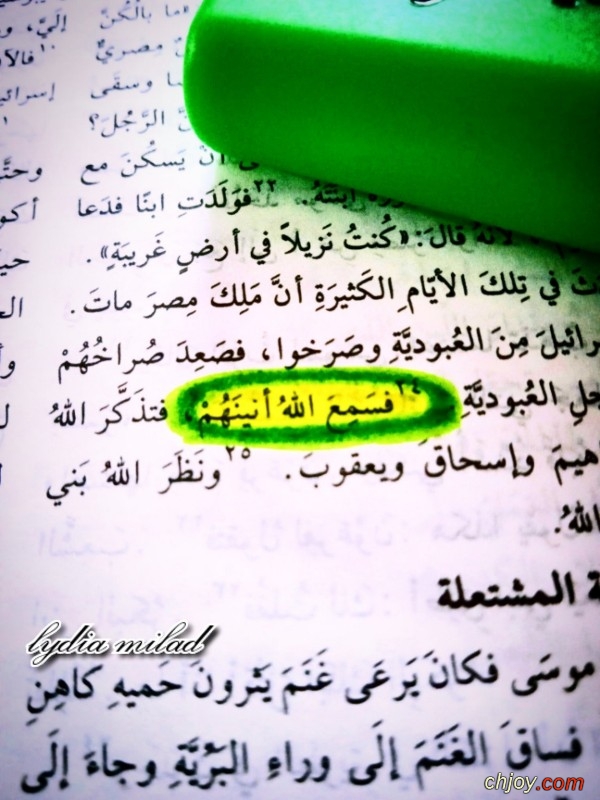 «ما بالُكُنَّ إلَيَّ، و
مِصريٌّ ١٠ فالآ
وسقَى إسرائيـ
الرَّجُلَ؟
أنْ يَسكُنَ مع وحتَّـ
ابنَتَهُ. ٢٢ فوَلَدَتِ ابنًا فدَعا أكو
لأنَّهُ قالَ: «كُنتُ نَزيلاً في أرضٍ غَريبَةٍ».
في تِلكَ الأيّامِ الكَثيرَةِ أنَّ مَلِكَ مِصرَ ماتَ.
رائيلَ مِنَ العُبوديَّةِ وصَرَخوا، فصَعِدَ صُراخُهُمْ
جلِ العُبوديَّةِ. ٢٤ فسَمِعَ اللهُ أنينَهُمْ، فتذَكَّرَ اللهُ
اهيمَ وإسحاقَ ويعقوبَ. ٢٥ ونَظَرَ اللهُ بَني
اللهُ.
ة المشتعلة
lydia milad
موسَى فكانَ يَرعَى غَنَمَ يَثرونَ حَميهِ كاهِنِ
فساقَ الغَنَمَ إلَى وراءِ البَرّيَّةِ وجاءَ إلَى
chjoy.com